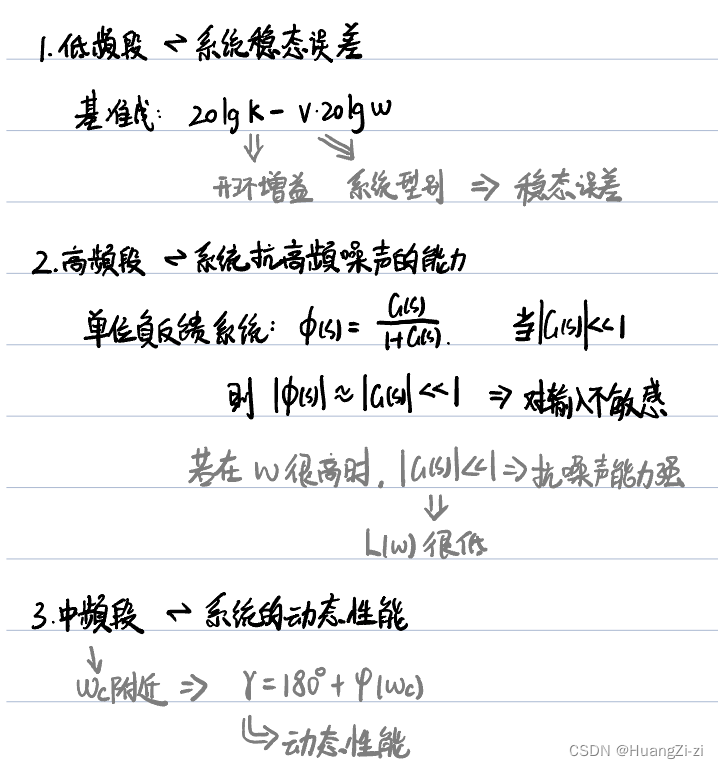 1.低频段 ⇌ 系统稳态误差
基准线: 20lgK - v·20lgω
开环增益 系统型别 ⇒ 稳态误差
2.高频段 ⇌ 系统抗高频噪声的能力
单位负反馈系统: φ(s) = G(s)/1+G(s). 当|G(s)|<<1
则 |φ(s)| ≈ |G(s)| <<1 ⇒ 对输入不敏感
若在 ω 很高时, |G(s)|<<1 ⇒ 抗噪声能力强
⇓
L(ω) 很低
3.中频段 ⇌ 系统的动态性能
ωc附近 ⇒ γ = 180° + φ(ωc)
↳ 动态性能
CSDN @HuangZi-zi